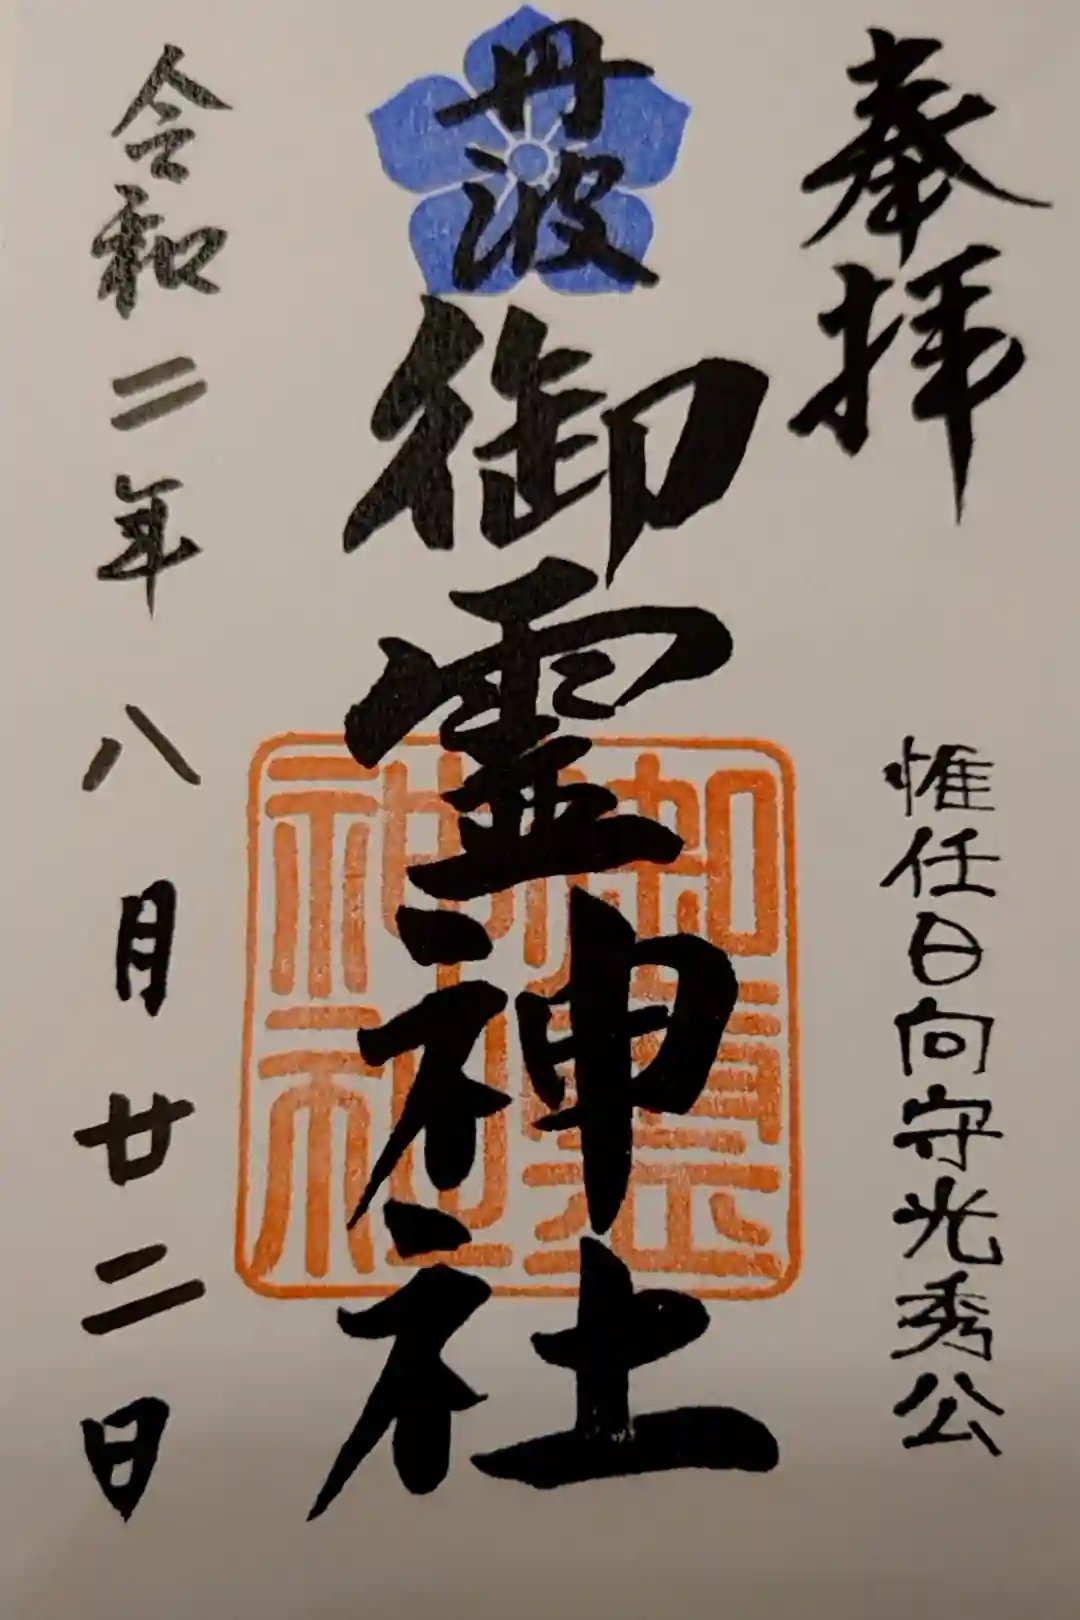 奉拝
惟任日向守光秀公
丹波
御霊神社
御霊
神社
令和二年八月廿二日